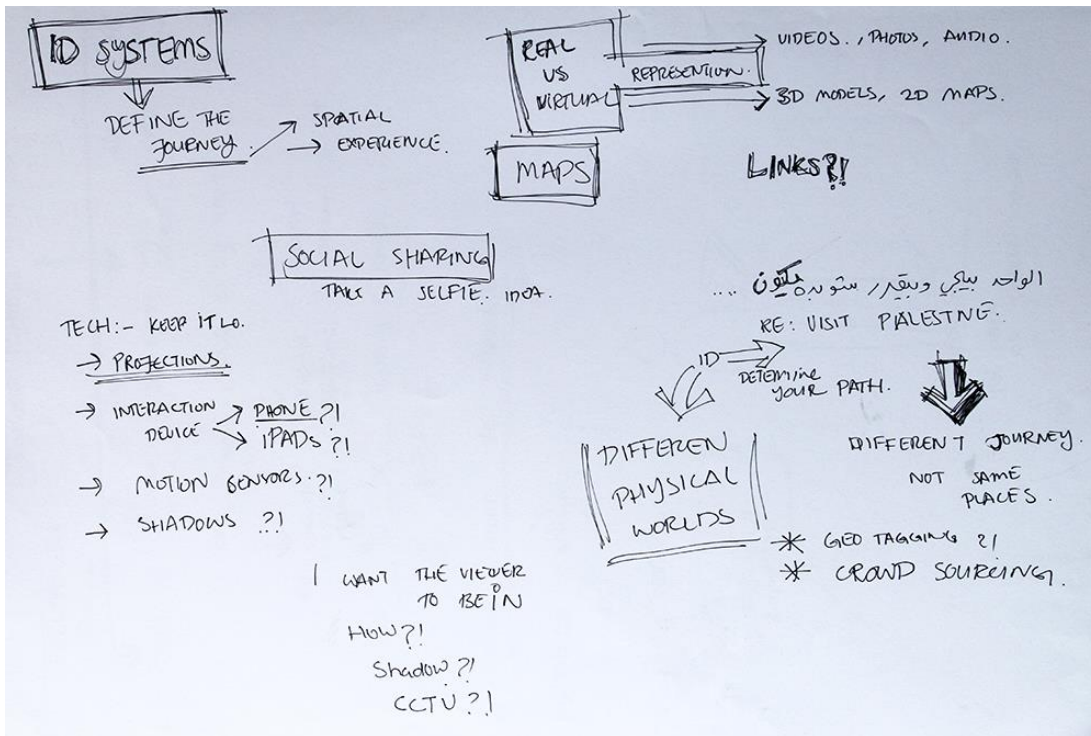 ID SYSTEMS
DEFINE THE
JOURNEY.
SPATIAL
EXPERIENCE.
REAL
VS
VIRTUAL
REPRESENTION.
VIDEOS., PHOTOS, AUDIO.
3D MODELS, 2D MAPS.
MAPS
LINKS?!
SOCIAL SHARING
TAKE A SELFIE. IDEA.
TECH:- KEEP IT LO.
→ PROJECTIONS.
→ INTERACTION
DEVICE
PHONE ?!
iPADs ?!
→ MOTION SENSORS. ?!
→ SHADOWS ?!
I WANT THE VIEWER
TO BE iN
HOW?!
Shadow ?!
CCTV ?!
الواحد بيجي وبيقدر
RE: VISIT PALESTNE.
ID
DETEMINE
YOUR PATH.
DIFFEREN
PHYSICAL
WORLDS
DIFFERENT JOURNEY.
NOT SAME
PLACES.
* GEO TAGGING ?!
* CROWD SOURCING.